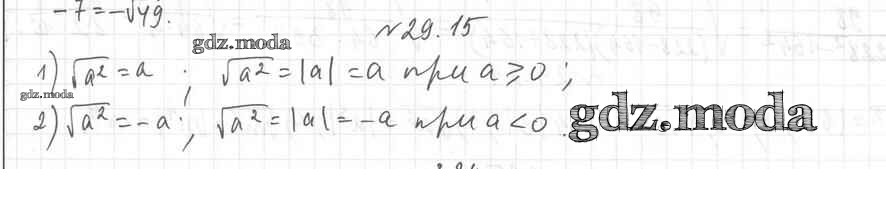 -7=-√49.
№29.15
gdz.moda
1) √a² = a ; √a² = |a| = a при a ⩾ 0 ;
gdz.moda
2) √a² = -a ; √a² = |a| = -a при a < 0 .
gdz.moda